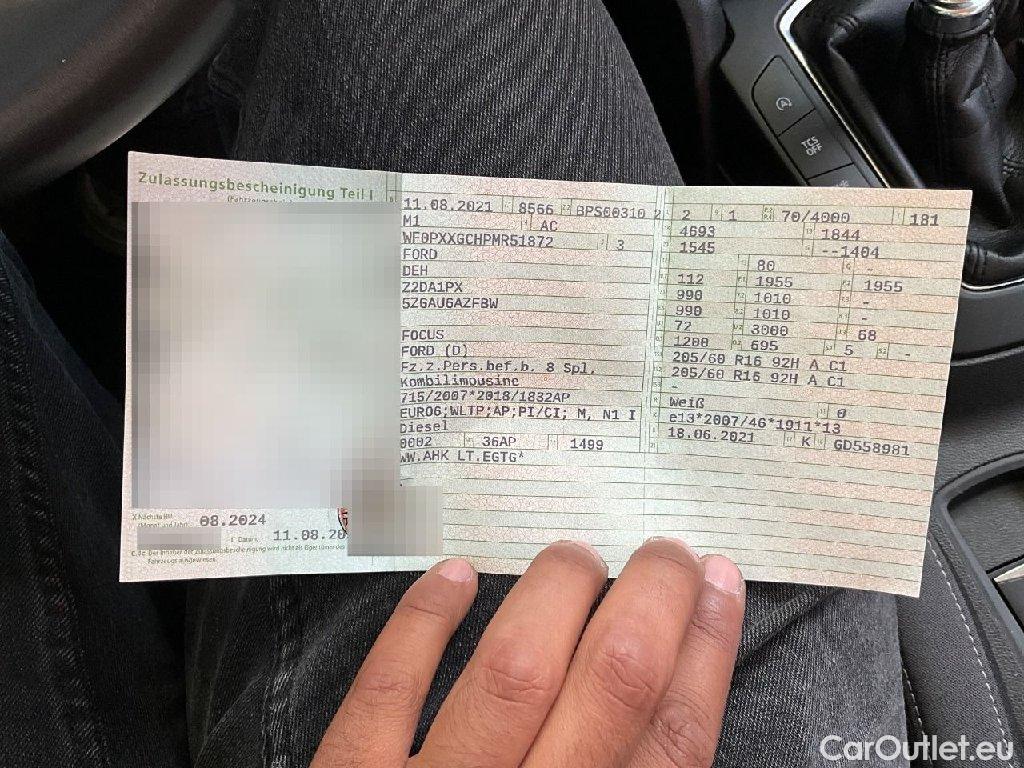 Zulassungsbescheinigung Teil I
11.08.2021 8566 BPS60310 2
M1 AC
WF0PXXGCHPMR51872 3
FORD
DEH
Z2DA1PX
5Z6AU6AZFBW
FOCUS
FORD (D)
Fz.z.Pers.bef.b. 8 Spl.
Kombilimousine
715/2007*2018/1832AP
EURO6;WLTP;AP;PI/CI; M, N1 I
Diesel
0002 36AP 1499
WW.AHK LT.EGTG*
2 1 70/4000 181
4693 1844
1545 --1404
80 -
112 1955 1955
990 1010 -
990 1010 -
72 3000 68
1200 695 5 -
205/60 R16 92H A C1
205/60 R16 92H A C1
-
Weiß 0
e13*2007/46*1911*13
18.06.2021 K GD558981
08.2024
11.08.20
TCS
OFF
CarOutlet.eu